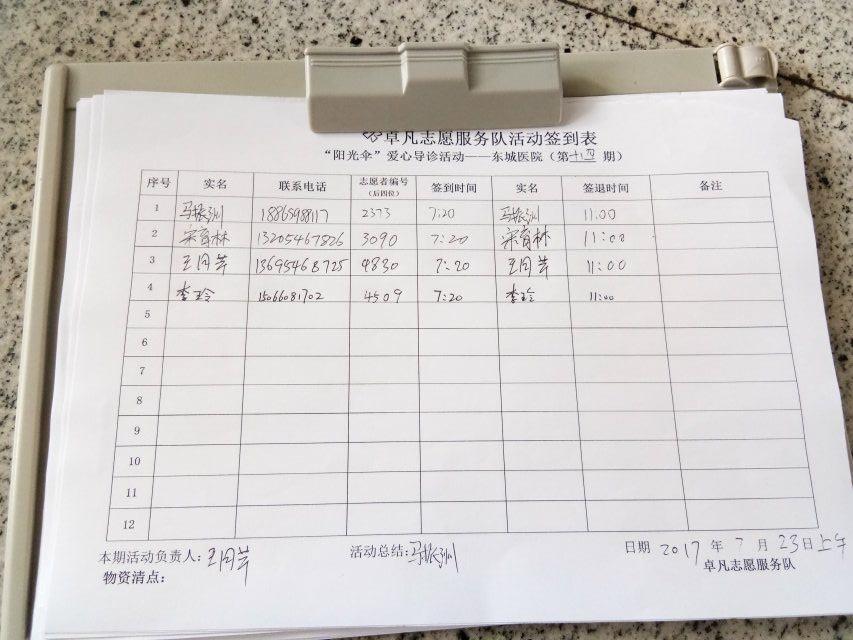 卓凡志愿服务队活动签到表
“阳光伞”爱心导诊活动——东城医院（第十四期）
序号 实名 联系电话 志愿者编号（后四位） 签到时间 实名 签退时间 备注
1 马振洲 18865988117 2373 7:20 马振洲 11:00
2 宋育林 13205467826 3090 7:20 宋育林 11:00
3 王同芹 13695468725 4830 7:20 王同芹 11:00
4 李玲 15066081702 4509 7:20 李玲 11:00
5
6
7
8
9
10
11
12
本期活动负责人：王同芹 活动总结：马振洲 日期 2017年7月23日上午
物资清点： 卓凡志愿服务队